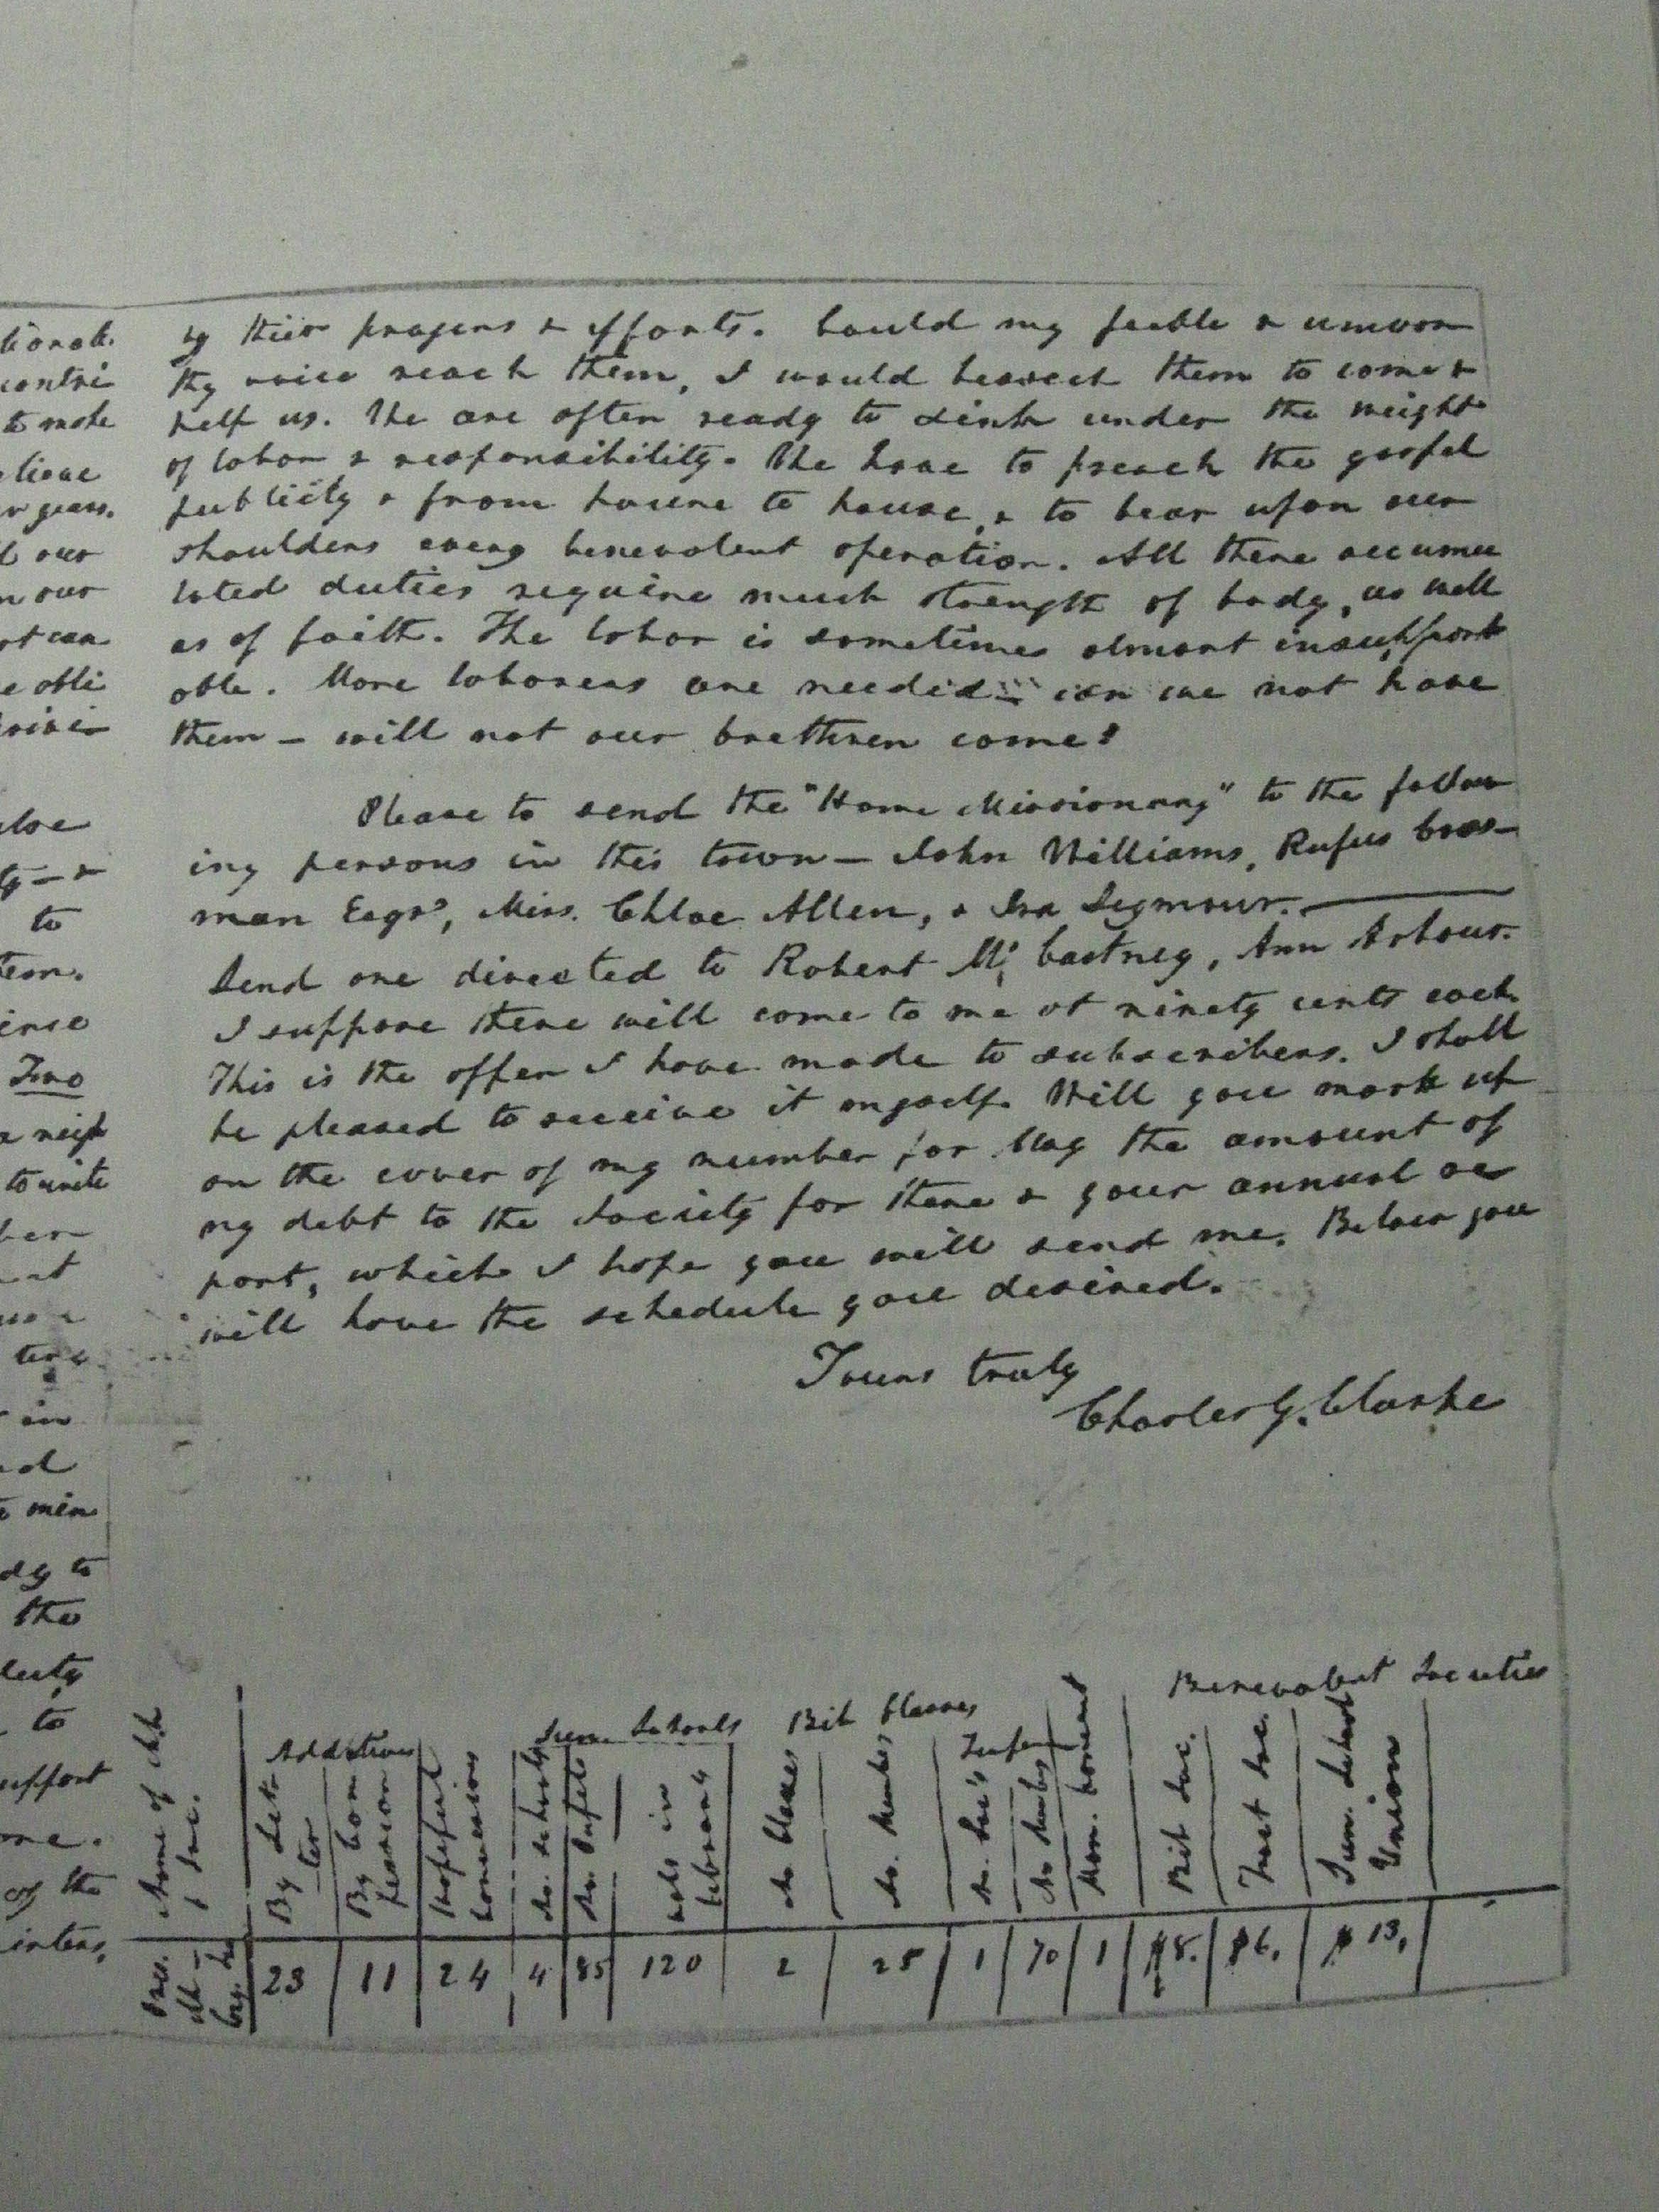 tionate
contri
to make
lieve
er years.
d our
n our
ot can
e obli
to
tem.
ince
Two
a neigh
to unite
ber
in
ed
min
dy to
the
duty
to
support
me.
of the
winters,
by their prayers & efforts. Could my feeble & unwor
thy voice reach them, I would beseech them to come &
help us. We are often ready to sink under the weight
of labor & responsibility. We have to preach the gospel
publicly & from house to house, & to bear upon our
shoulders every benevolent operation. All these accumu
lated duties require much strength of body, as well
as of faith. The labor is sometimes almost insupport
able. More laborers are needed – can we not have
them – will not our brethren come?
Please to send the "Home Missionary" to the follow
ing persons in this town – John Williams, Rufus Cros-
man Esqrs, Miss. Chloe Allen, & Ira Seymour.
Send one directed to Robert Mc Cartney, Ann Arbour.
I suppose these will come to me at ninety cents each.
This is the offer I have made to subscribers. I shall
be pleased to receive it myself. Will you mark up
on the cover of my number for May the amount of
my debt to the Society for these & your annual re
port, which I hope you will send me. Below you
will have the schedule you desired.
Yours truly
Charles G. Clarke
Name of chh & Soc.
Additions
By Letter
By Confession
Hopeful conversions
Sun. Schools
No. schools
No. Pupils
vols in Library
Bib Classes
No Classes
No. Members
Temp
No. Soc's
No Members
Mon. Concert
Benevolent Societies
Bib Soc.
Tract Soc.
Sun. School Union
23 11 24 4 85 120 2 25 1 70 1 $8. $6. $13.